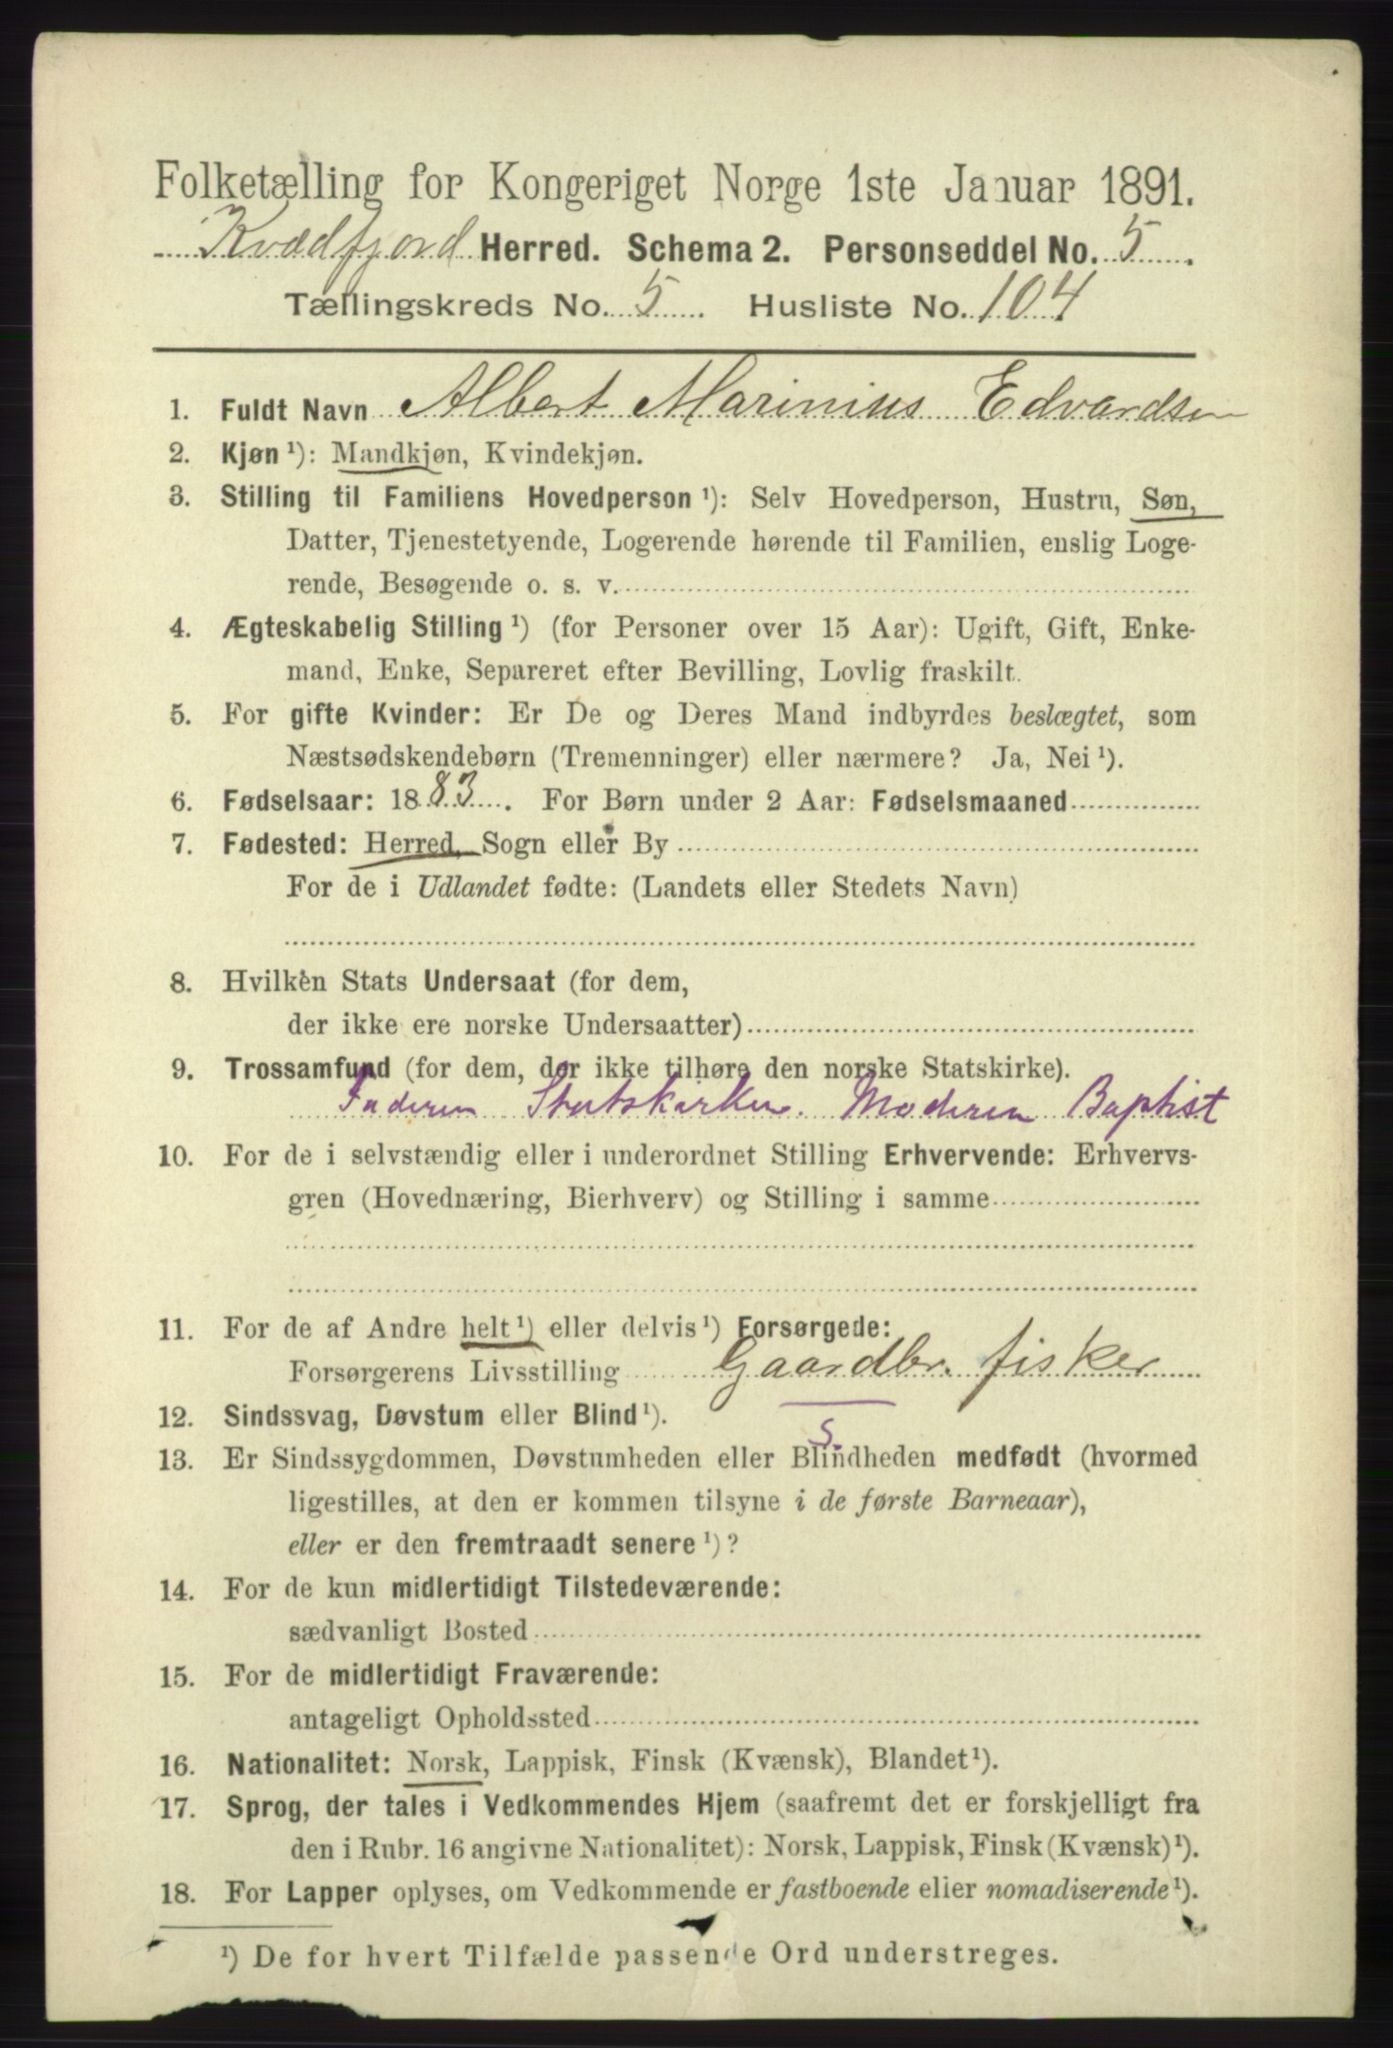 Folketælling for Kongeriget Norge 1ste Januar 1891.
Kvædfjord Herred. Schema 2. Personseddel No. 5.
Tællingskreds No. 5. Husliste No. 104
1. Fuldt Navn Albert Marinius Edvardsen
2. Kjøn ¹): Mandkjøn, Kvindekjøn.
3. Stilling til Familiens Hovedperson ¹): Selv Hovedperson, Hustru, Søn,
Datter, Tjenestetyende, Logerende hørende til Familien, enslig Loge-
rende, Besøgende o. s. v.
4. Ægteskabelig Stilling ¹) (for Personer over 15 Aar): Ugift, Gift, Enke-
mand, Enke, Separeret efter Bevilling, Lovlig fraskilt.
5. For gifte Kvinder: Er De og Deres Mand indbyrdes beslægtet, som
Næstsødskendebørn (Tremenninger) eller nærmere? Ja, Nei ¹).
6. Fødselsaar: 1883. For Børn under 2 Aar: Fødselsmaaned
7. Fødested: Herred, Sogn eller By
For de i Udlandet fødte: (Landets eller Stedets Navn)
8. Hvilken Stats Undersaat (for dem,
der ikke ere norske Undersaatter)
9. Trossamfund (for dem, der ikke tilhøre den norske Statskirke).
Faderen Statskirken. Moderen Baptist
10. For de i selvstændig eller i underordnet Stilling Erhvervende: Erhvervs-
gren (Hovednæring, Bierhverv) og Stilling i samme
11. For de af Andre helt ¹) eller delvis ¹) Forsørgede:
Forsørgerens Livsstilling Gaardbr. fisker
S.
12. Sindssvag, Døvstum eller Blind ¹).
13. Er Sindssygdommen, Døvstumheden eller Blindheden medfødt (hvormed
ligestilles, at den er kommen tilsyne i de første Barneaar),
eller er den fremtraadt senere ¹)?
14. For de kun midlertidigt Tilstedeværende:
sædvanligt Bosted
15. For de midlertidigt Fraværende:
antageligt Opholdssted
16. Nationalitet: Norsk, Lappisk, Finsk (Kvænsk), Blandet ¹).
17. Sprog, der tales i Vedkommendes Hjem (saafremt det er forskjelligt fra
den i Rubr. 16 angivne Nationalitet): Norsk, Lappisk, Finsk (Kvænsk) ¹).
18. For Lapper oplyses, om Vedkommende er fastboende eller nomadiserende ¹).
¹) De for hvert Tilfælde passende Ord understreges.